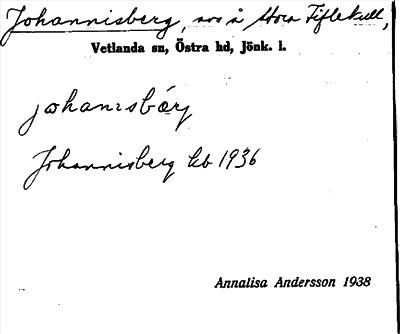 Johannisberg, avs å Stora Fiflekull,
Vetlanda sn, Östra hd, Jönk. l.
johanisbærj
Johannisberg kb 1936
Annalisa Andersson 1938